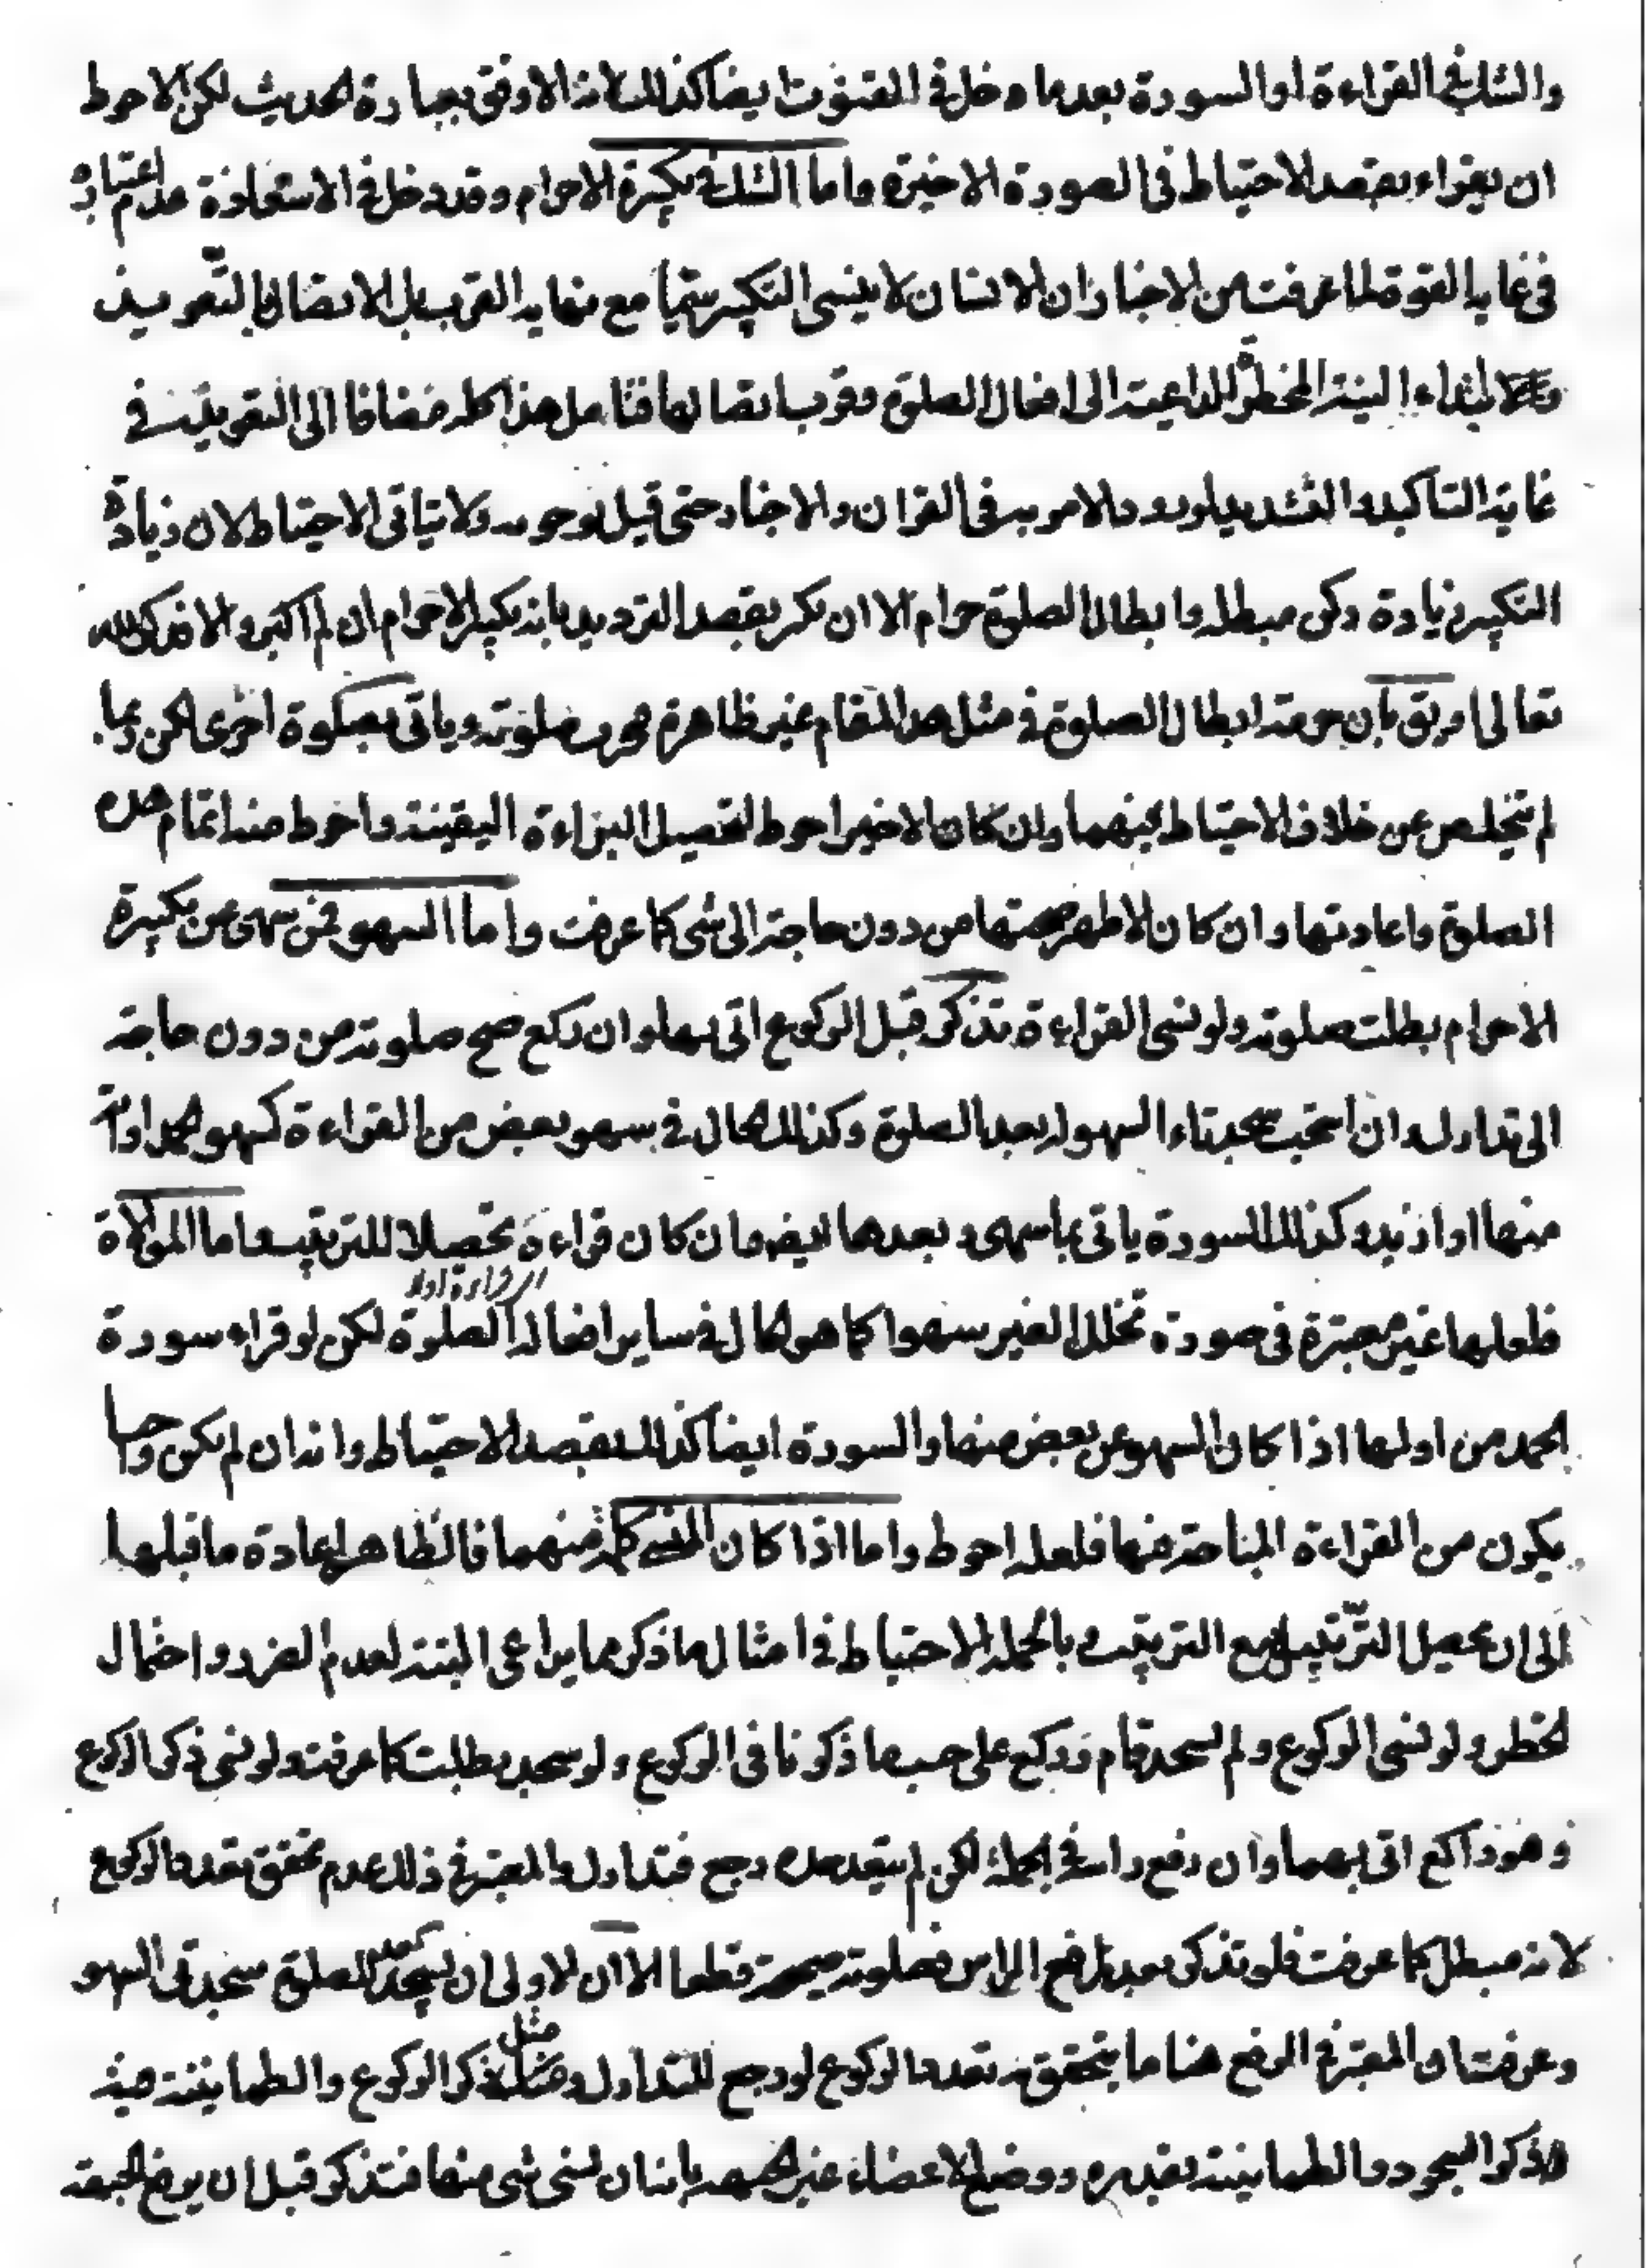 والشك في القراءة او السورة بعد ما دخل في القنوت ايضا كذلك لانه الاوفق بعبارة الحديث لكن الاحوط
ان يقراء بقصد الاحتياط في الصورة الاخيرة واما الشك في تكبيرة الاحرام وقد دخل في الاستعاذة عدم اعتباره
في غاية القوة لما عرفت من الاخبار ان الانسان لا ينسى التكبير سيما مع نهاية القرب بل الاتصال بالتعويذ
لابتداء النية المخطرة الداعية الى افعال الصلوة وقرب اتصالها فتامل هذا كله مضافا الى التعويذ في
غاية التاكيد والتشديد لورود الامر به في القران والاخبار حتى قيل بوجوبه ولا يتاتى الاحتياط لان زيادة
التكبير زيادة ركن مبطلة وابطال الصلوة حرام الا ان يكبر بقصد الترديد بانه تكبير الاحرام ان لم اكبر والا فذكر الله
تعالى او يق بان حرمة ابطال الصلوة في مثل هذا المقام غير ظاهرة فيخرب صلوته وياتي بصلوة اخرى لكن ربما
لم يتخلص عن خلاف الاحتياط بينهما وان كان الاخير احوط لتحصيل البراءة اليقينية واحوط منه اتمام هذه
الصلوة واعادتها وان كان الاظهر صحتها من دون حاجة الى شى كما عرفت واما السهو فمن سهى عن تكبيرة
الاحرام بطلت صلوته ولو نسى القراءة تذكر قبل الركوع اتى بها وان ركع صح صلوته من دون حاجة
الى تدارك وان استحب سجدتاء السهو له بعد الصلوة وكذلك الحال في سهو بعض من القراءة كسهو الحمد او اية
منها او ازيد وكذلك السورة ياتي بما سهى وبعدها ايضا وان كان قراءة تحصيلا للترتيب واما الموالاة
فلعلها غير معتبرة في صورة تخلل الغير سهوا كما هو الحال في ساير افعال الصلوة لكن لو قراء سورة
القراءة اولا
الحمد من اولها اذا كان السهو عن بعض منها والسورة ايضا كذلك بقصد الاحتياط وانه ان لم يكن واجبا
يكون من القراءة المباحة فيها فلعله احوط واما اذا كان المنسى كلمة منهما فالظاهر اعادة ما قبلها
الى ان يحصل الترتيب مع الترتيب وبالجملة الاحتياط في امثال ما ذكر مما يراعى البتة لعدم الضرر واحتمال
الخطر ولو نسى الركوع ولم يسجد قام وركع على حسب ما ذكرنا في الركوع ولو سجد بطلت كما عرفت ولو نسى ذكر الركوع
وهو راكع اتى بهما وان رفع راسه في الجملة لكن لم يتعد حده رجع فتدارك والمعتبر في ذلك عدم تحقق تعدد الركوع
لانه مبطل كما عرفت فلو تذكر بعد رفع الراس فصلوته صحيحة قطعا الا ان الاولى ان يسجد بعد الصلوة سجدتى السهو
وعرفت ان المعتبر في الرفع هنا ما يتحقق به تعدد الركوع لو رجع للتدارك ومثل ذكر الركوع والطمانينة فيه
ذكر السجود والطمانينة بقدره ووضع الاعضاء غير الجبهة بان نسى شى منها فتذكر قبل ان يرفع الجبهة